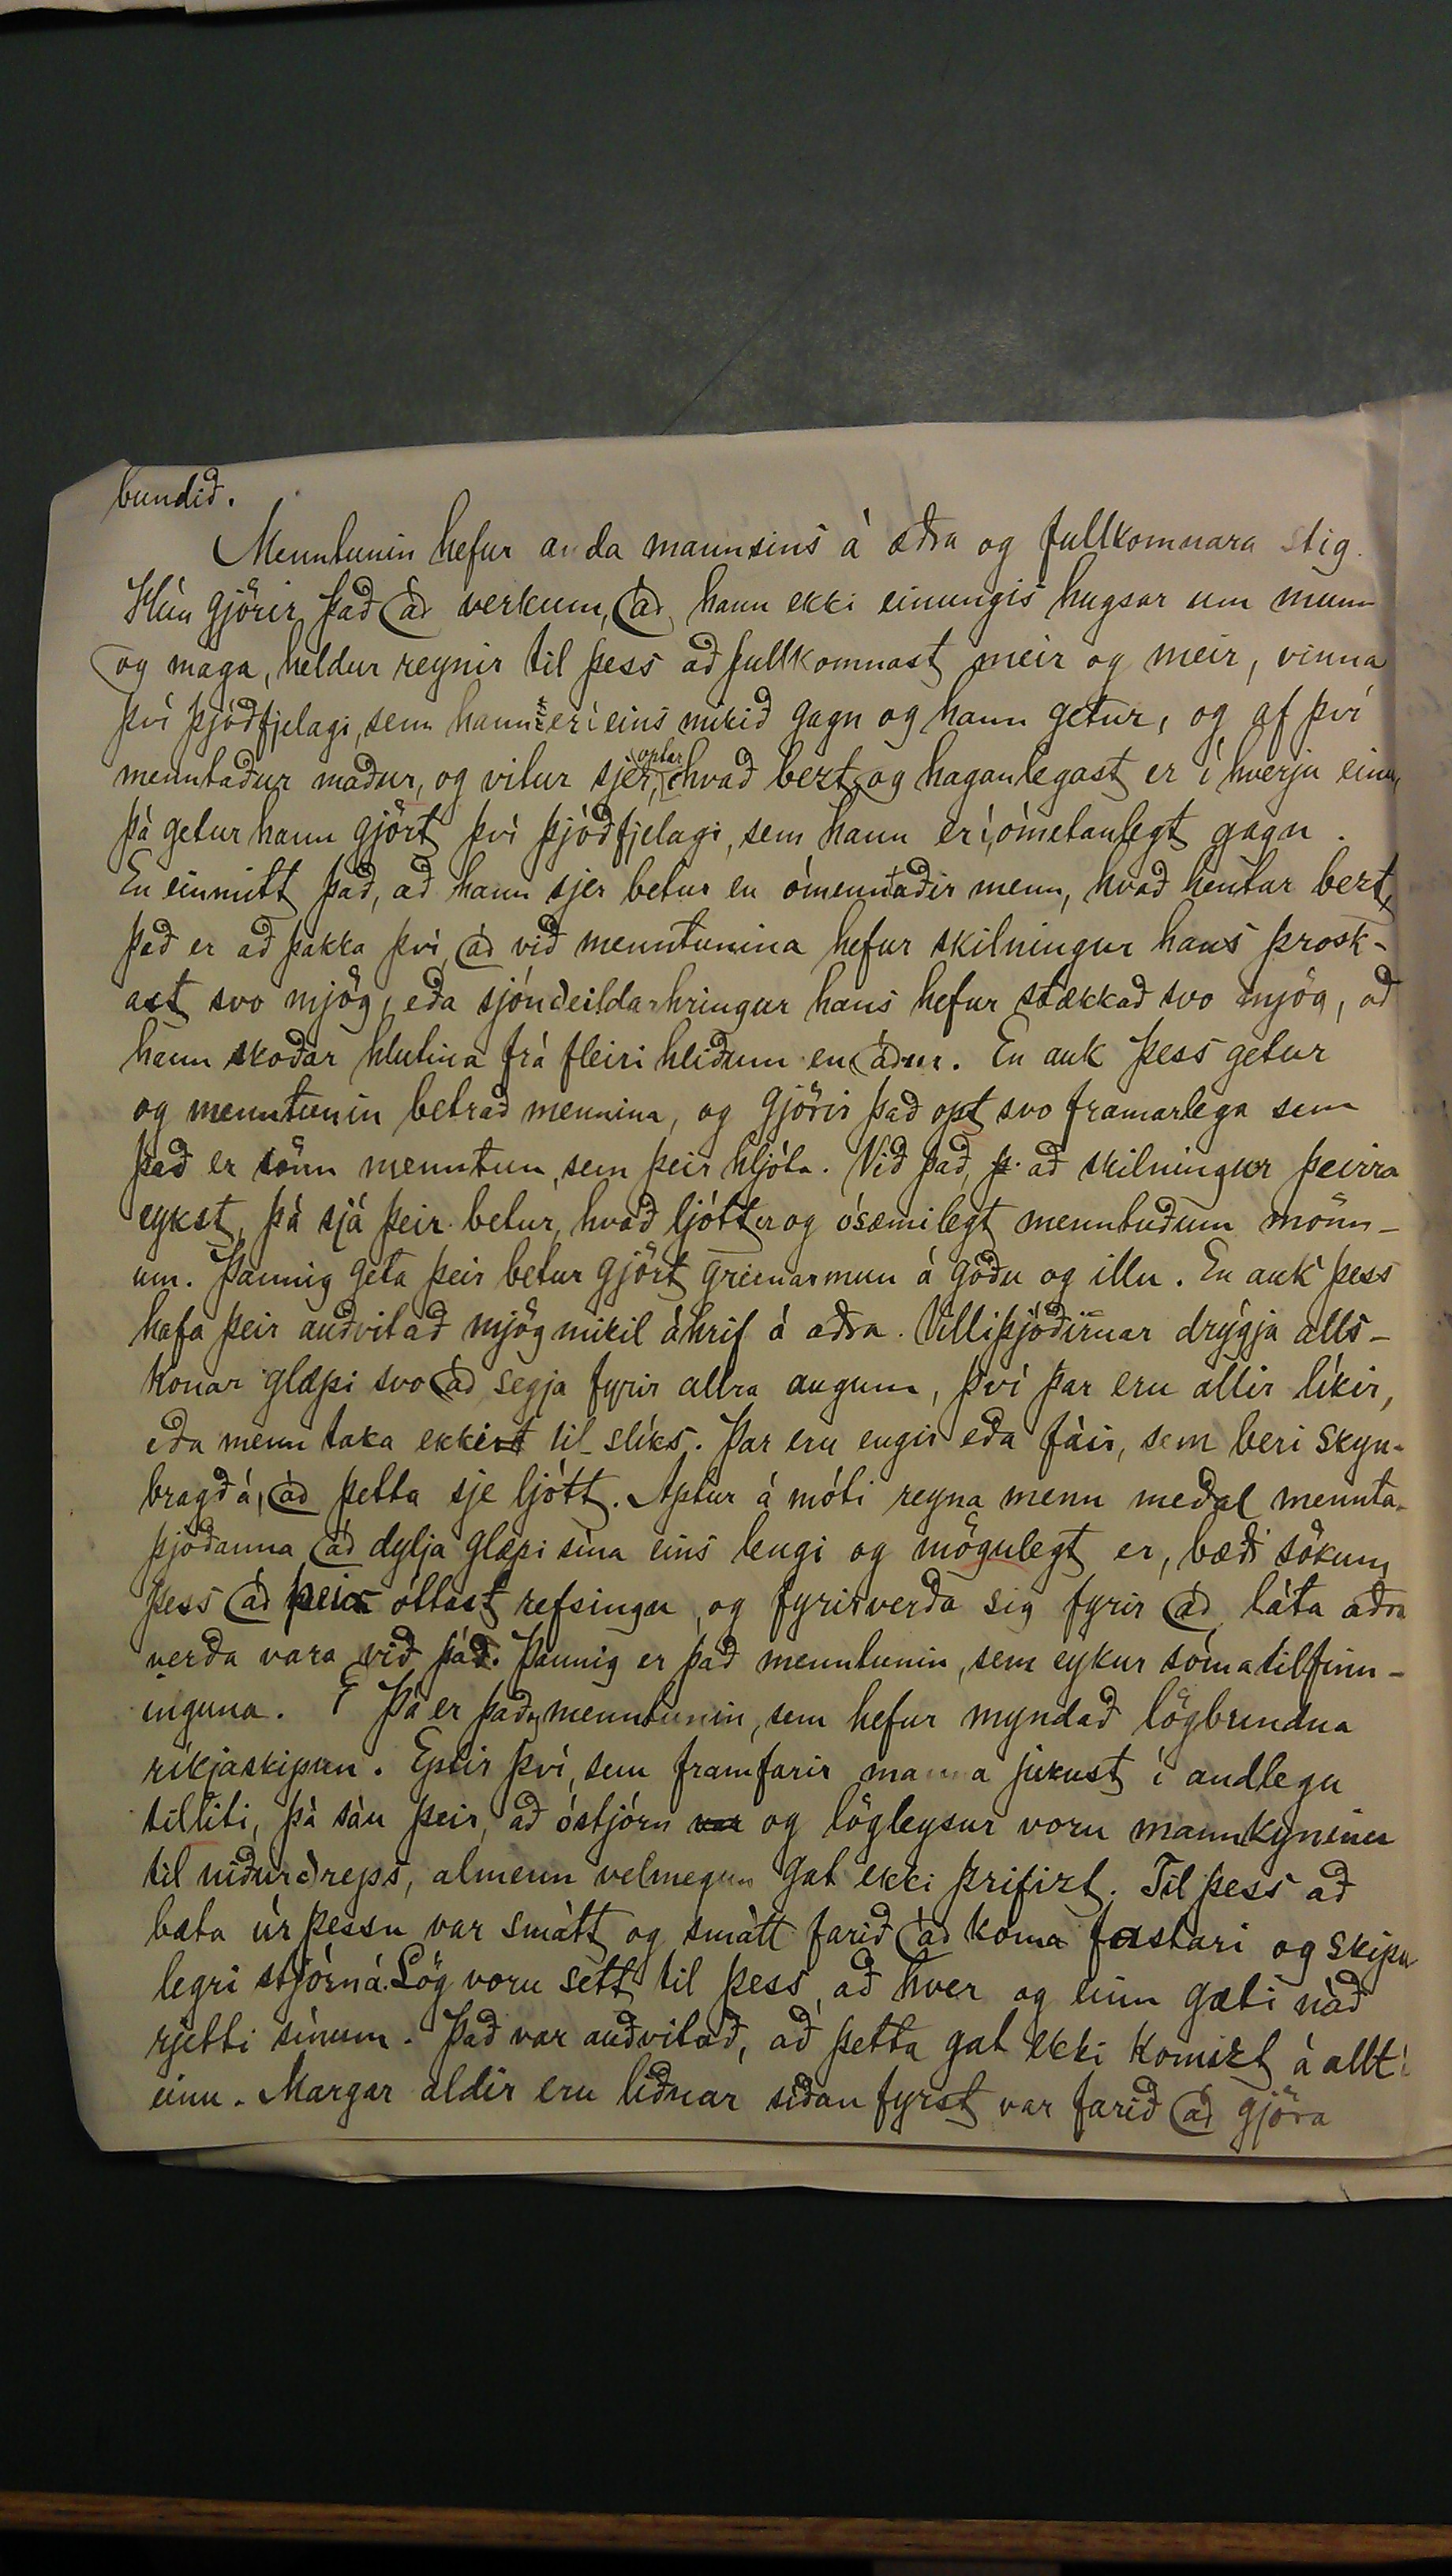 bundið.
Menntunin hefur anda mannsins á æðra og fullkomnara stig.
Hún gjörir það að verkum, að hann ekki einungis hugsar um munn
og maga, heldur reynir til þess að fullkomnast meir og meir, vinna
því þjóðfjelagi, sem hann er í eins mikið gagn og hann getur, og af því
menntaður maður, og vitur sjer optar hvað bezt og haganlegast er í hverju einu,
þá getur hann gjört því þjóðfjelagi, sem hann er í, ómetanlegt gagn.
En einmitt það, að hann sjer betur en ómenntaðir menn, hvað hentar bezt,
það er að þakka því, að við menntunina hefur skilningur hans þrosk-
ast svo mjög, eða sjóndeildarhringur hans hefur stækkað svo mjög, að
hann skoðar hlutina frá fleiri hliðum en áður. En auk þess getur
og menntunin betrað mennina, og gjörir það opt svo framarlega sem
það er sönn menntun, sem þeir hljóta. Við það, þ. að skilningur þeirra
eykst, þá sjá þeir betur, hvað ljótt er og ósæmilegt menntuðum mönn-
um. Þannig geta þeir betur gjört greinarmun á góðu og illu. En auk þess
hafa þeir auðvitað mjög mikil áhrif á aðra. Villiþjóðirnar drýgja alls-
konar glæpi svo að segja fyrir allra augum, því þar eru allir líkir,
eða menn taka ekkert til slíks. Þar eru engir eða fáir, sem beri skyn-
bragð á, að þetta sje ljótt. Aptur á móti reyna menn meðal mennta-
þjóðanna að dylja glæpi sína eins lengi og mögulegt er, bæði sökum
þess að þeir óttast refsingu, og fyrirverða sig fyrir að láta aðra
verða vara við það. Þannig er það menntunin, sem eykur sómatilfinn-
inguna. Þá er það og menntunin, sem hefur myndað lögbundna
ríkjaskipun. Eptir því, sem framfarir manna jukust í andlegu
tilliti, þá sáu þeir, að óstjórn var og lögleysur voru mannkyninu
til niðurdreps, almenn velmegun gat ekki þrifizt. Til þess að
bæta úr þessu var smátt og smátt farið að koma fastari og skipu
legri stjórn á. Lög voru sett til þess, að hver og einn gæti náð
rjetti sínum. Það var auðvitað, að þetta gat ekki komizt á allt í
einu. Margar aldir eru liðnar síðan fyrst var farið að gjöra